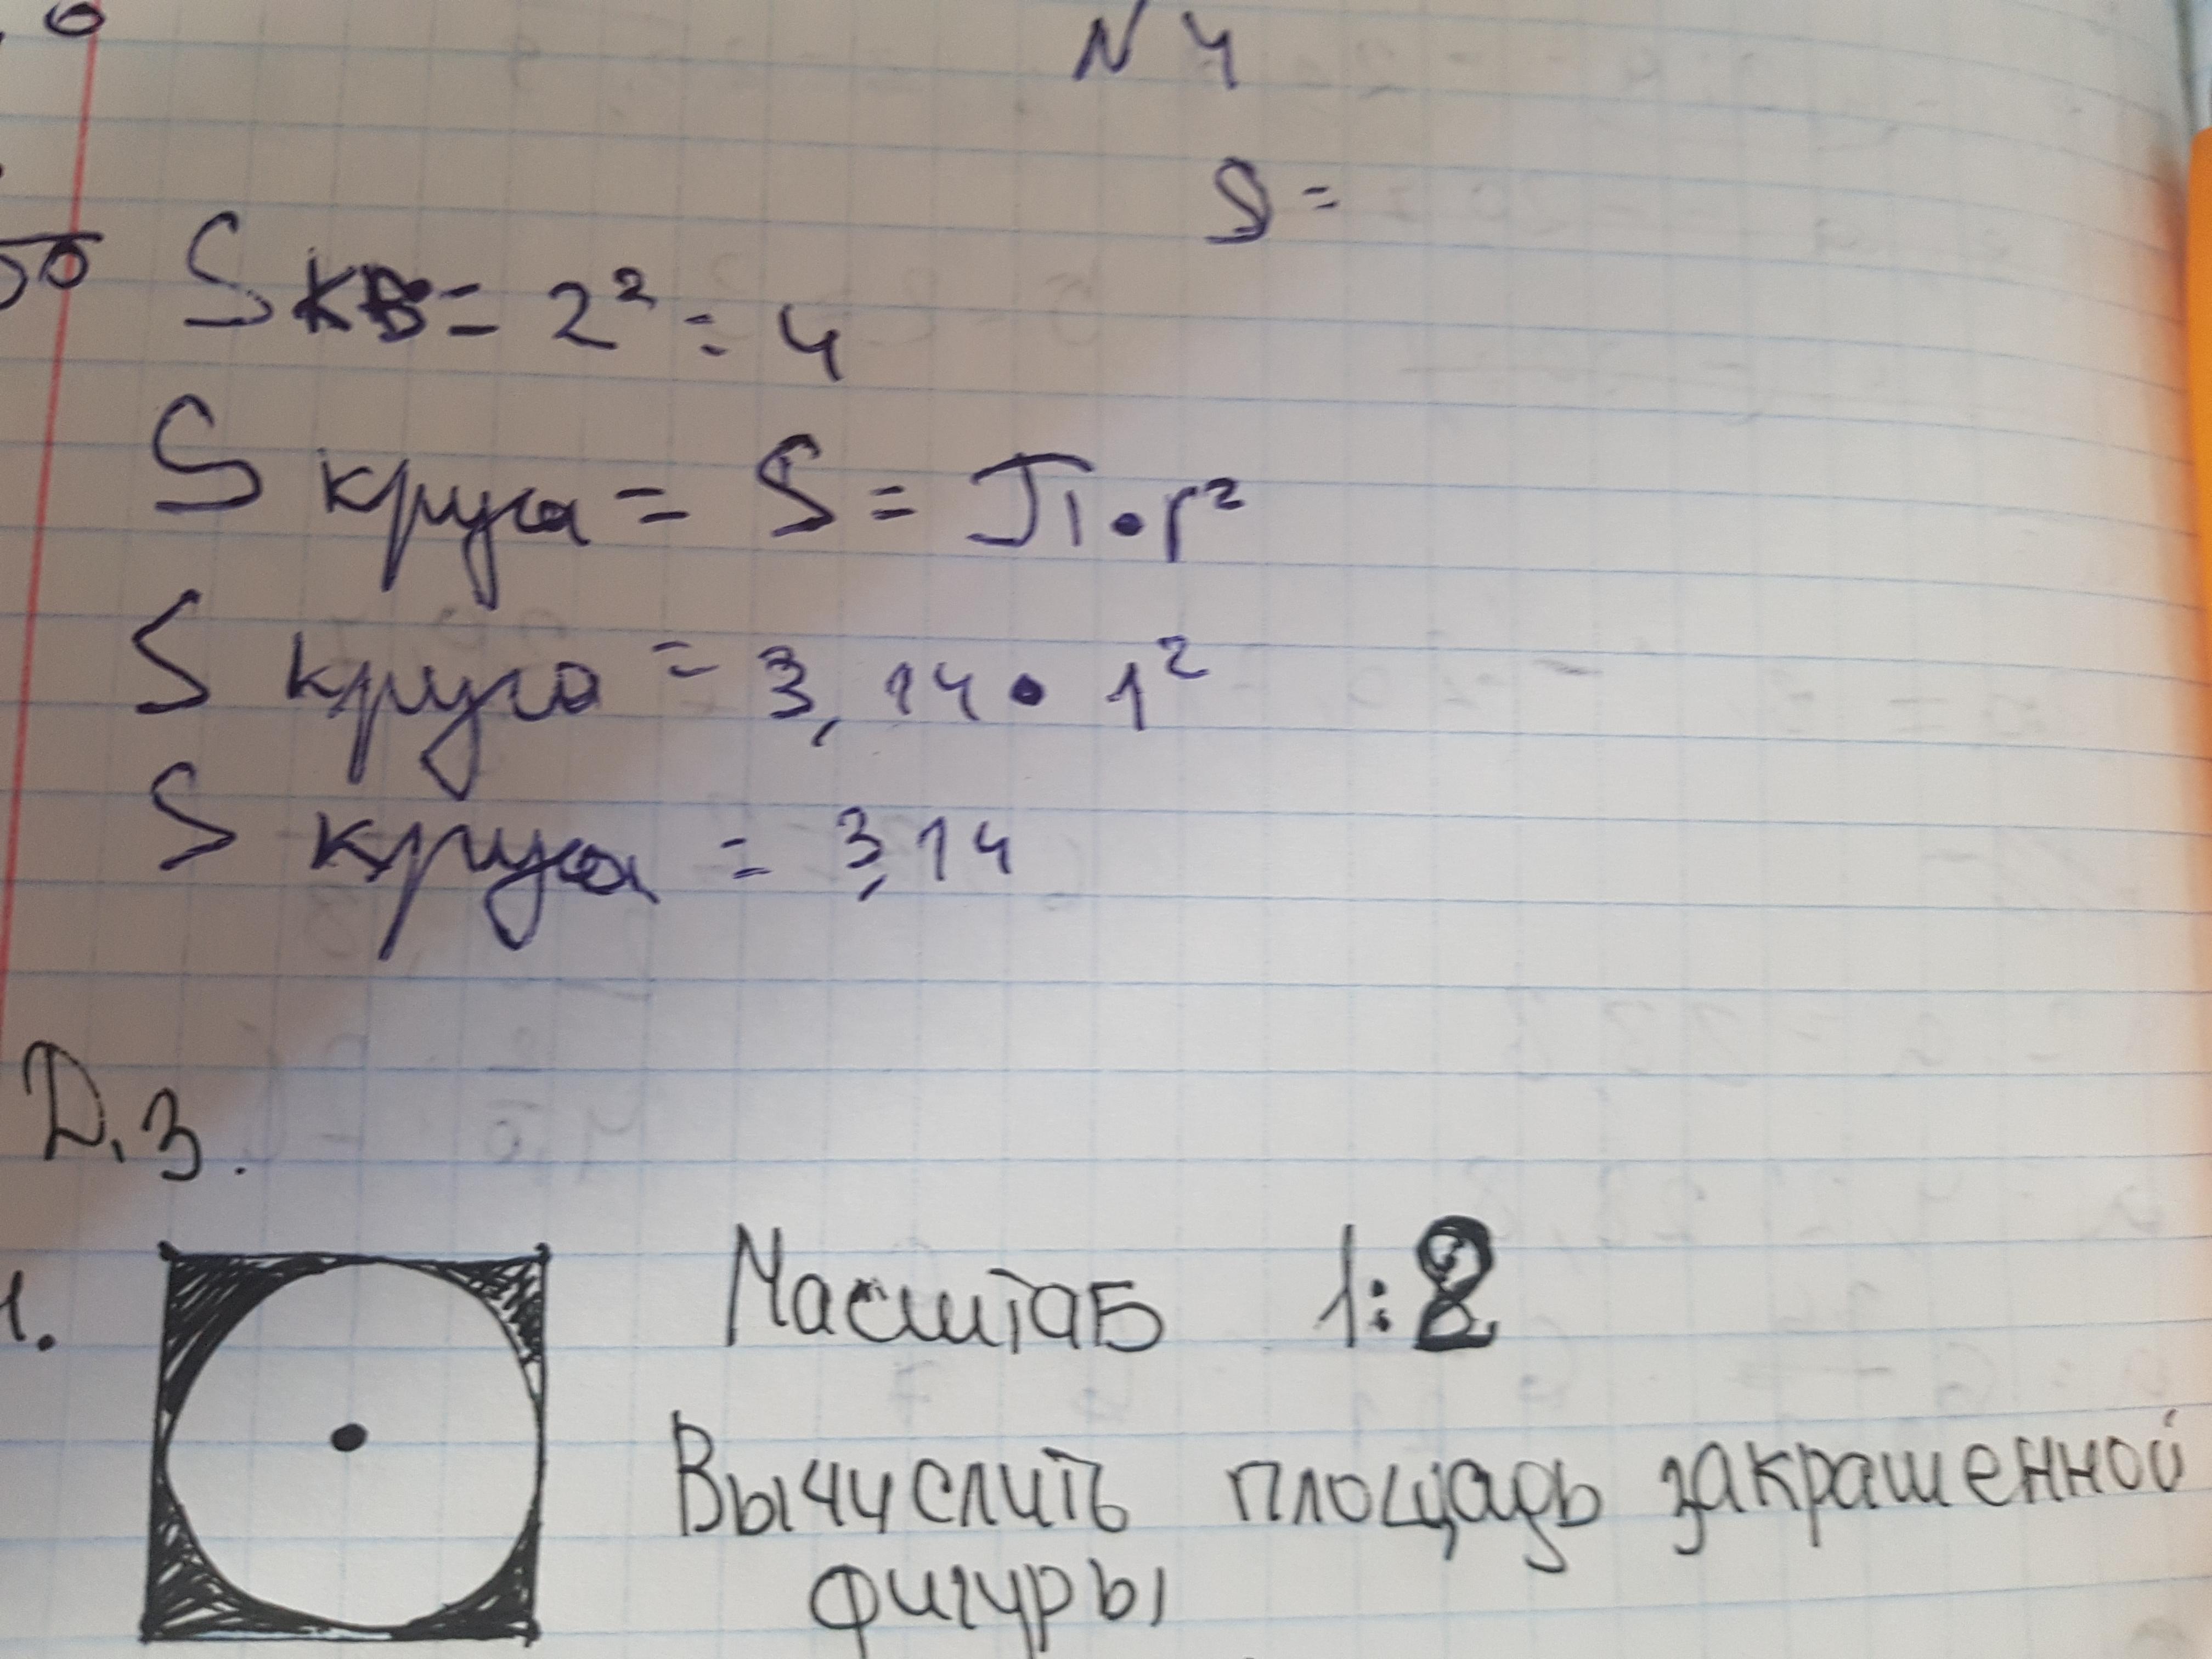 N 4
S =
Sкв = 2² = 4
S круга = S = П • r²
S круга = 3,14 • 1²
S круга = 3,14
Д.з.
1. Масштаб 1:2
Вычислить площадь закрашенной
фигуры